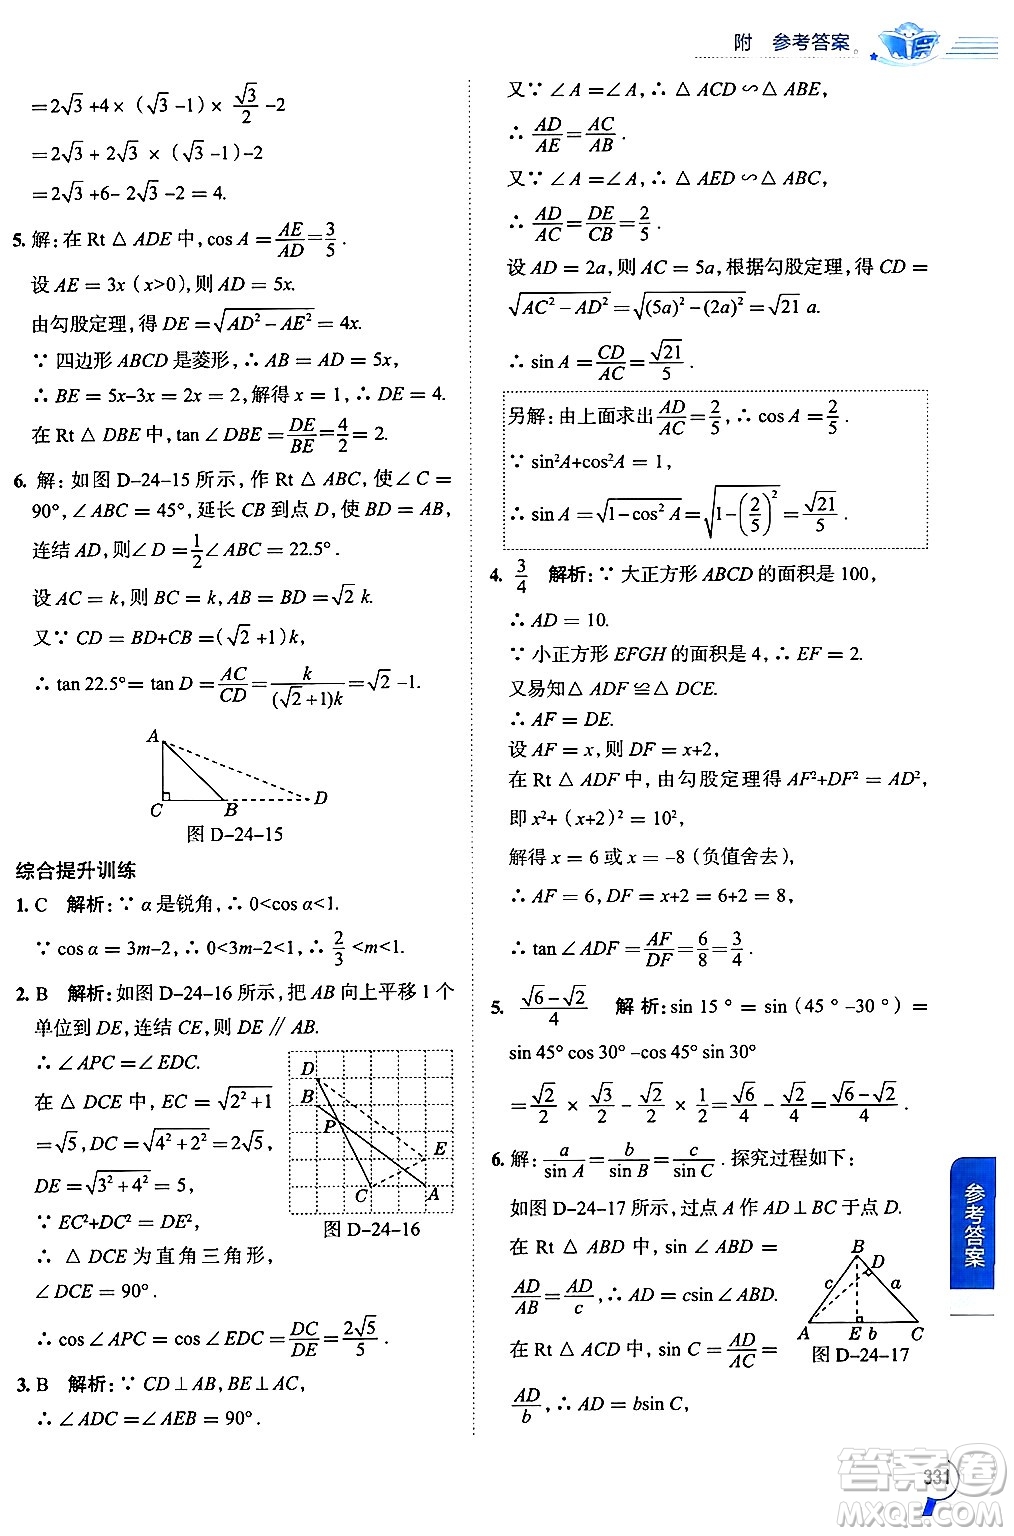 附 参考答案
=2√3+4×(√3-1)×√3/2-2
=2√3+2√3×(√3-1)-2
=2√3+6-2√3-2=4.
5. 解:在 Rt△ADE 中,cos A=AE/AD=3/5.
设 AE=3x(x>0),则 AD=5x.
由勾股定理,得 DE=√(AD²-AE²)=4x.
∵ 四边形 ABCD 是菱形,∴ AB=AD=5x,
∴ BE=5x-3x=2,解得 x=1,∴ DE=4.
在 Rt△DBE 中,tan∠DBE=DE/BE=4/2=2.
6. 解:如图 D-24-15 所示,作 Rt△ABC,使∠C=
90°,∠ABC=45°,延长 CB 到点 D,使 BD=AB,
连结 AD,则∠D=1/2∠ABC=22.5°.
设 AC=k,则 BC=k,AB=BD=√2 k.
又∵ CD=BD+CB=(√2+1)k,
∴ tan 22.5°=tan D=AC/CD=k/((√2+1)k)=√2-1.
A
C B D
图 D-24-15
综合提升训练
1. C 解析:∵ α 是锐角,∴ 0<cos α<1.
∵ cos α=3m-2,∴ 0<3m-2<1,∴ 2/3<m<1.
2. B 解析:如图 D-24-16 所示,把 AB 向上平移 1 个
单位到 DE,连结 CE,则 DE∥AB.
∴ ∠APC=∠EDC.
在△DCE 中,EC=√(2²+1)
=√5,DC=√(4²+2²)=2√5,
DE=√(3²+4²)=5,
∵ EC²+DC²=DE²,
∴ △DCE 为直角三角形,
∠DCE=90°.
∴ cos∠APC=cos∠EDC=DC/DE=2√5/5.
D
B
P
E
C A
图 D-24-16
3. B 解析:∵ CD⊥AB,BE⊥AC,
∴ ∠ADC=∠AEB=90°.
又∵ ∠A=∠A,∴ △ACD∽△ABE,
∴ AD/AE=AC/AB.
又∵ ∠A=∠A,∴ △AED∽△ABC,
∴ AD/AC=DE/CB=2/5.
设 AD=2a,则 AC=5a,根据勾股定理,得 CD=
√(AC²-AD²)=√((5a)²-(2a)²)=√21 a.
∴ sin A=CD/AC=√21/5.
另解:由上面求出AD/AC=2/5,∴ cos A=2/5.
∵ sin²A+cos²A=1,
∴ sin A=√(1-cos²A)=√(1-(2/5)²)=√21/5.
4. 3/4 解析:∵ 大正方形 ABCD 的面积是 100,
∴ AD=10.
∵ 小正方形 EFGH 的面积是 4,∴ EF=2.
又易知△ADF≌△DCE.
∴ AF=DE.
设 AF=x,则 DF=x+2,
在 Rt△ADF 中,由勾股定理得 AF²+DF²=AD²,
即 x²+(x+2)²=10²,
解得 x=6 或 x=-8(负值舍去),
∴ AF=6,DF=x+2=6+2=8,
∴ tan∠ADF=AF/DF=6/8=3/4.
5. (√6-√2)/4 解析:sin 15°=sin(45°-30°)=
sin 45°cos 30°-cos 45°sin 30°
=√2/2×√3/2-√2/2×1/2=√6/4-√2/4=(√6-√2)/4.
6. 解:a/sin A=b/sin B=c/sin C.探究过程如下:
如图 D-24-17,过点 A 作 AD⊥BC 于点 D.
在 Rt△ABD 中,sin∠ABD=
AD/AB=AD/c,∴ AD=csin∠ABD.
在 Rt△ACD 中,sin C=AD/AC=
AD/b,∴ AD=bsin C,
B
D
c a
A E b C
图 D-24-17
参考答案
331
答案圈
MXQE.COM